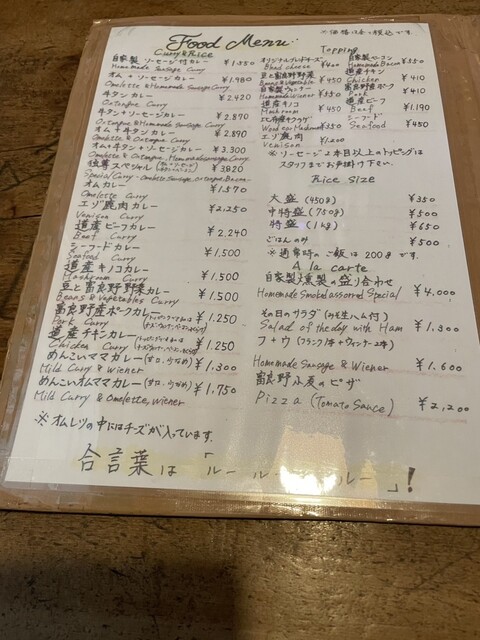 Food Menu
※価格は全て税込です。
Curry & Rice
自家製 ソーセージ付カレー ¥1,550
Homemade Sausage Curry
オム + ソーセージカレー ¥1,980
Omelette & Homemade Sausage Curry
牛タンカレー ¥2,420
Oxtongue Curry
牛タン+ソーセージカレー ¥2,870
Oxtongue & Homemade Sausage Curry
オム+牛タンカレー ¥2,890
Omelette & Oxtongue Curry
オム+牛タン+ソーセージカレー ¥3,300
Omelette & Oxtongue, Homemade Sausage Curry
スペシャル ¥3,820
Special Curry - Omelette, Sausage, Oxtongue, Bacon
オムカレー ¥1,570
Omelette Curry
エゾ鹿肉カレー ¥2,250
Venison Curry
道産ビーフカレー ¥2,240
Beef Curry
シーフードカレー ¥1,500
Seafood Curry
道産キノコカレー ¥1,500
Mushroom Curry
豆と富良野野菜カレー ¥1,500
Beans & Vegetables Curry
富良野産ポークカレー ¥1,250
Pork Curry
道産チキンカレー ¥1,250
Chicken Curry
めんこいママカレー (甘口、少なめ) ¥1,300
Mild Curry & Wiener
めんこいオムママカレー (甘口、少なめ) ¥1,750
Mild Curry & Omelette, wiener
※オムレツの中にはチーズが入っています。
Topping
オリジナルブレンドチーズ ¥400
Blend cheese
豆と富良野野菜 ¥450
Beans & Vegetable
自家製ウィンナー ¥350
Homemade Wiener
道産キノコ ¥450
Mushroom
¥450
エゾ鹿肉 ¥1,200
Venison
自家製ベーコン ¥550
Homemade Bacon
道産チキン ¥410
Chicken
富良野産ポーク ¥410
Pork
道産ビーフ ¥1,190
Beef
シーフード ¥450
Seafood
※ソーセージ2本目以上のトッピングは
スタッフまでお声掛け下さい。
Rice Size
大盛 (450g) ¥350
中特盛 (750g) ¥500
特盛 (1kg) ¥650
ごはんのみ ¥500
※通常時のご飯は200gです。
A la carte
自家製燻製の盛り合わせ ¥4,000
Homemade Smoked assorted Special
その日のサラダ (みそ生ハム付) ¥1,300
Salad of the day with Ham
フ+ウ (フランク1本+ウィンナー2本) ¥1,600
Homemade Sausage & Wiener
富良野小麦のピザ ¥2,200
Pizza (Tomato Sauce)
合言葉は「ルー ル ルー」!